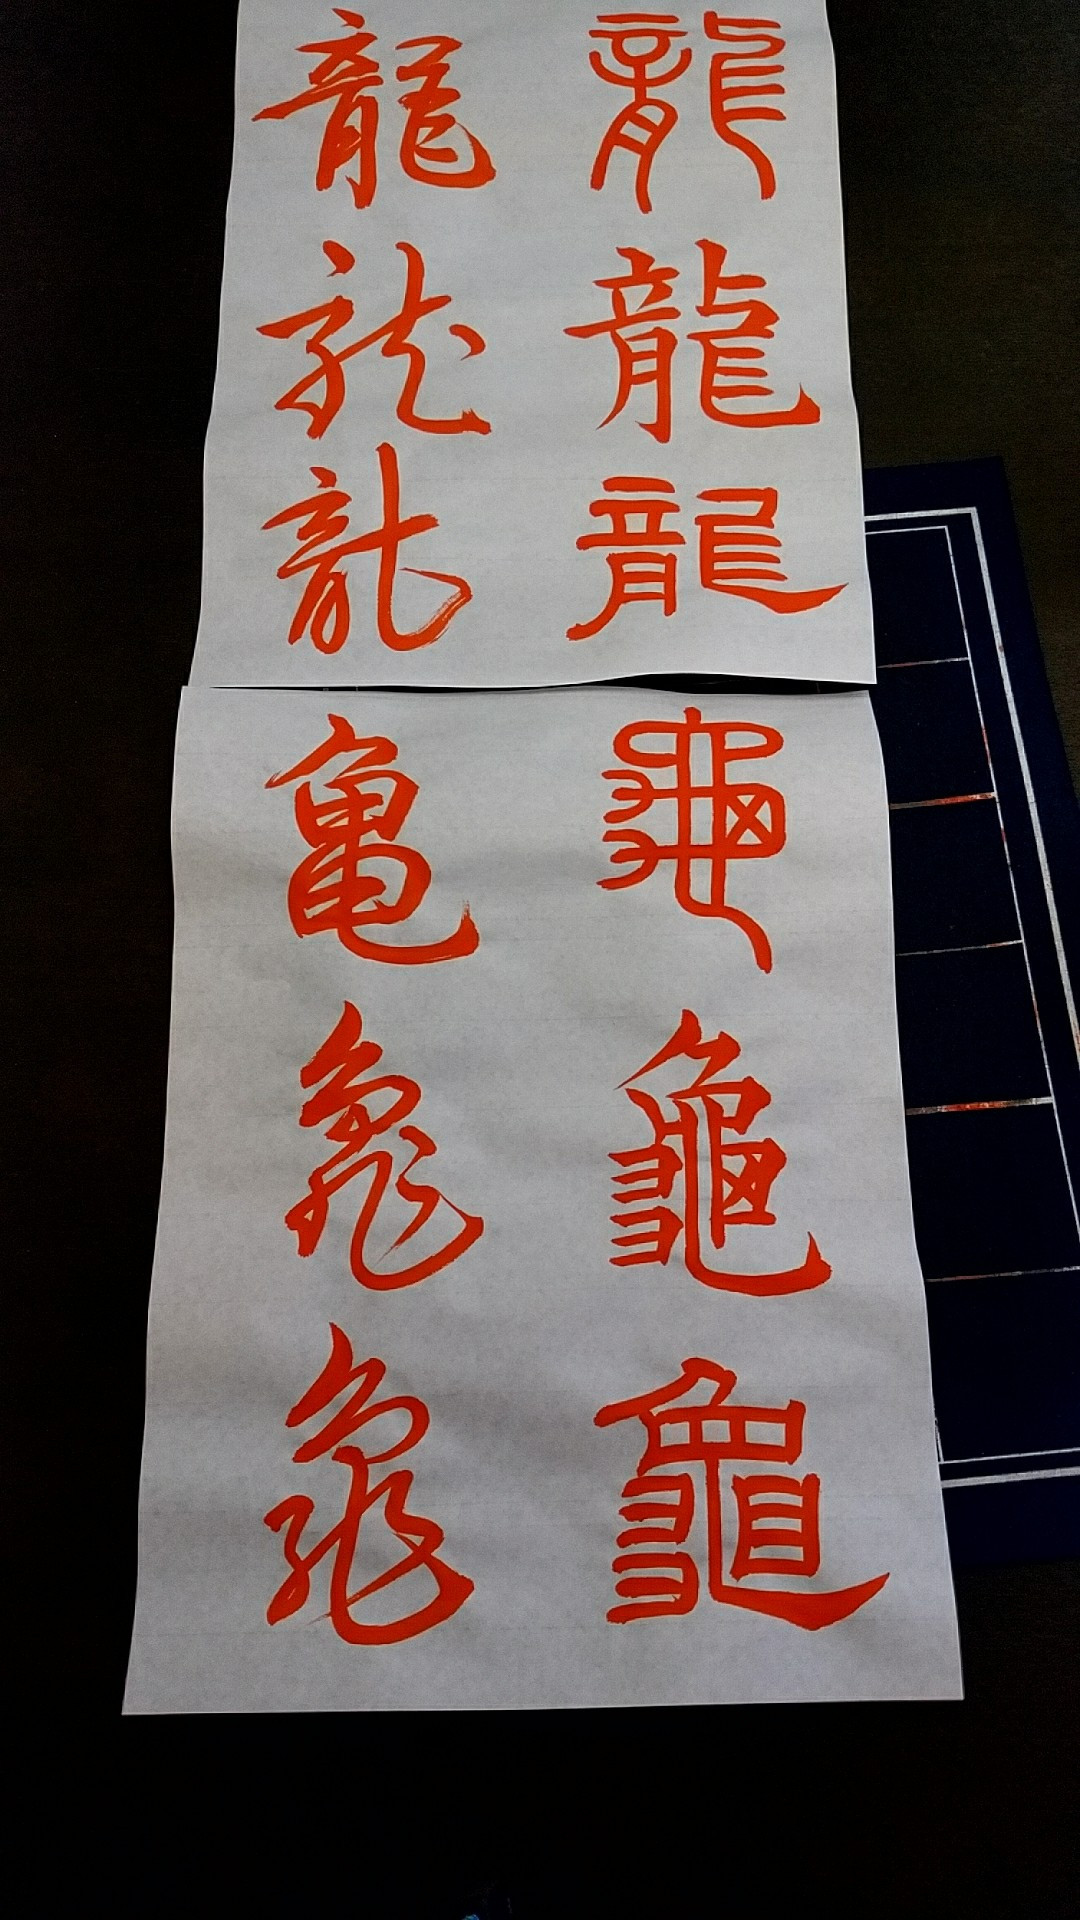 龍龍龍
龍龍龍
龜龜龜
亀龜龜